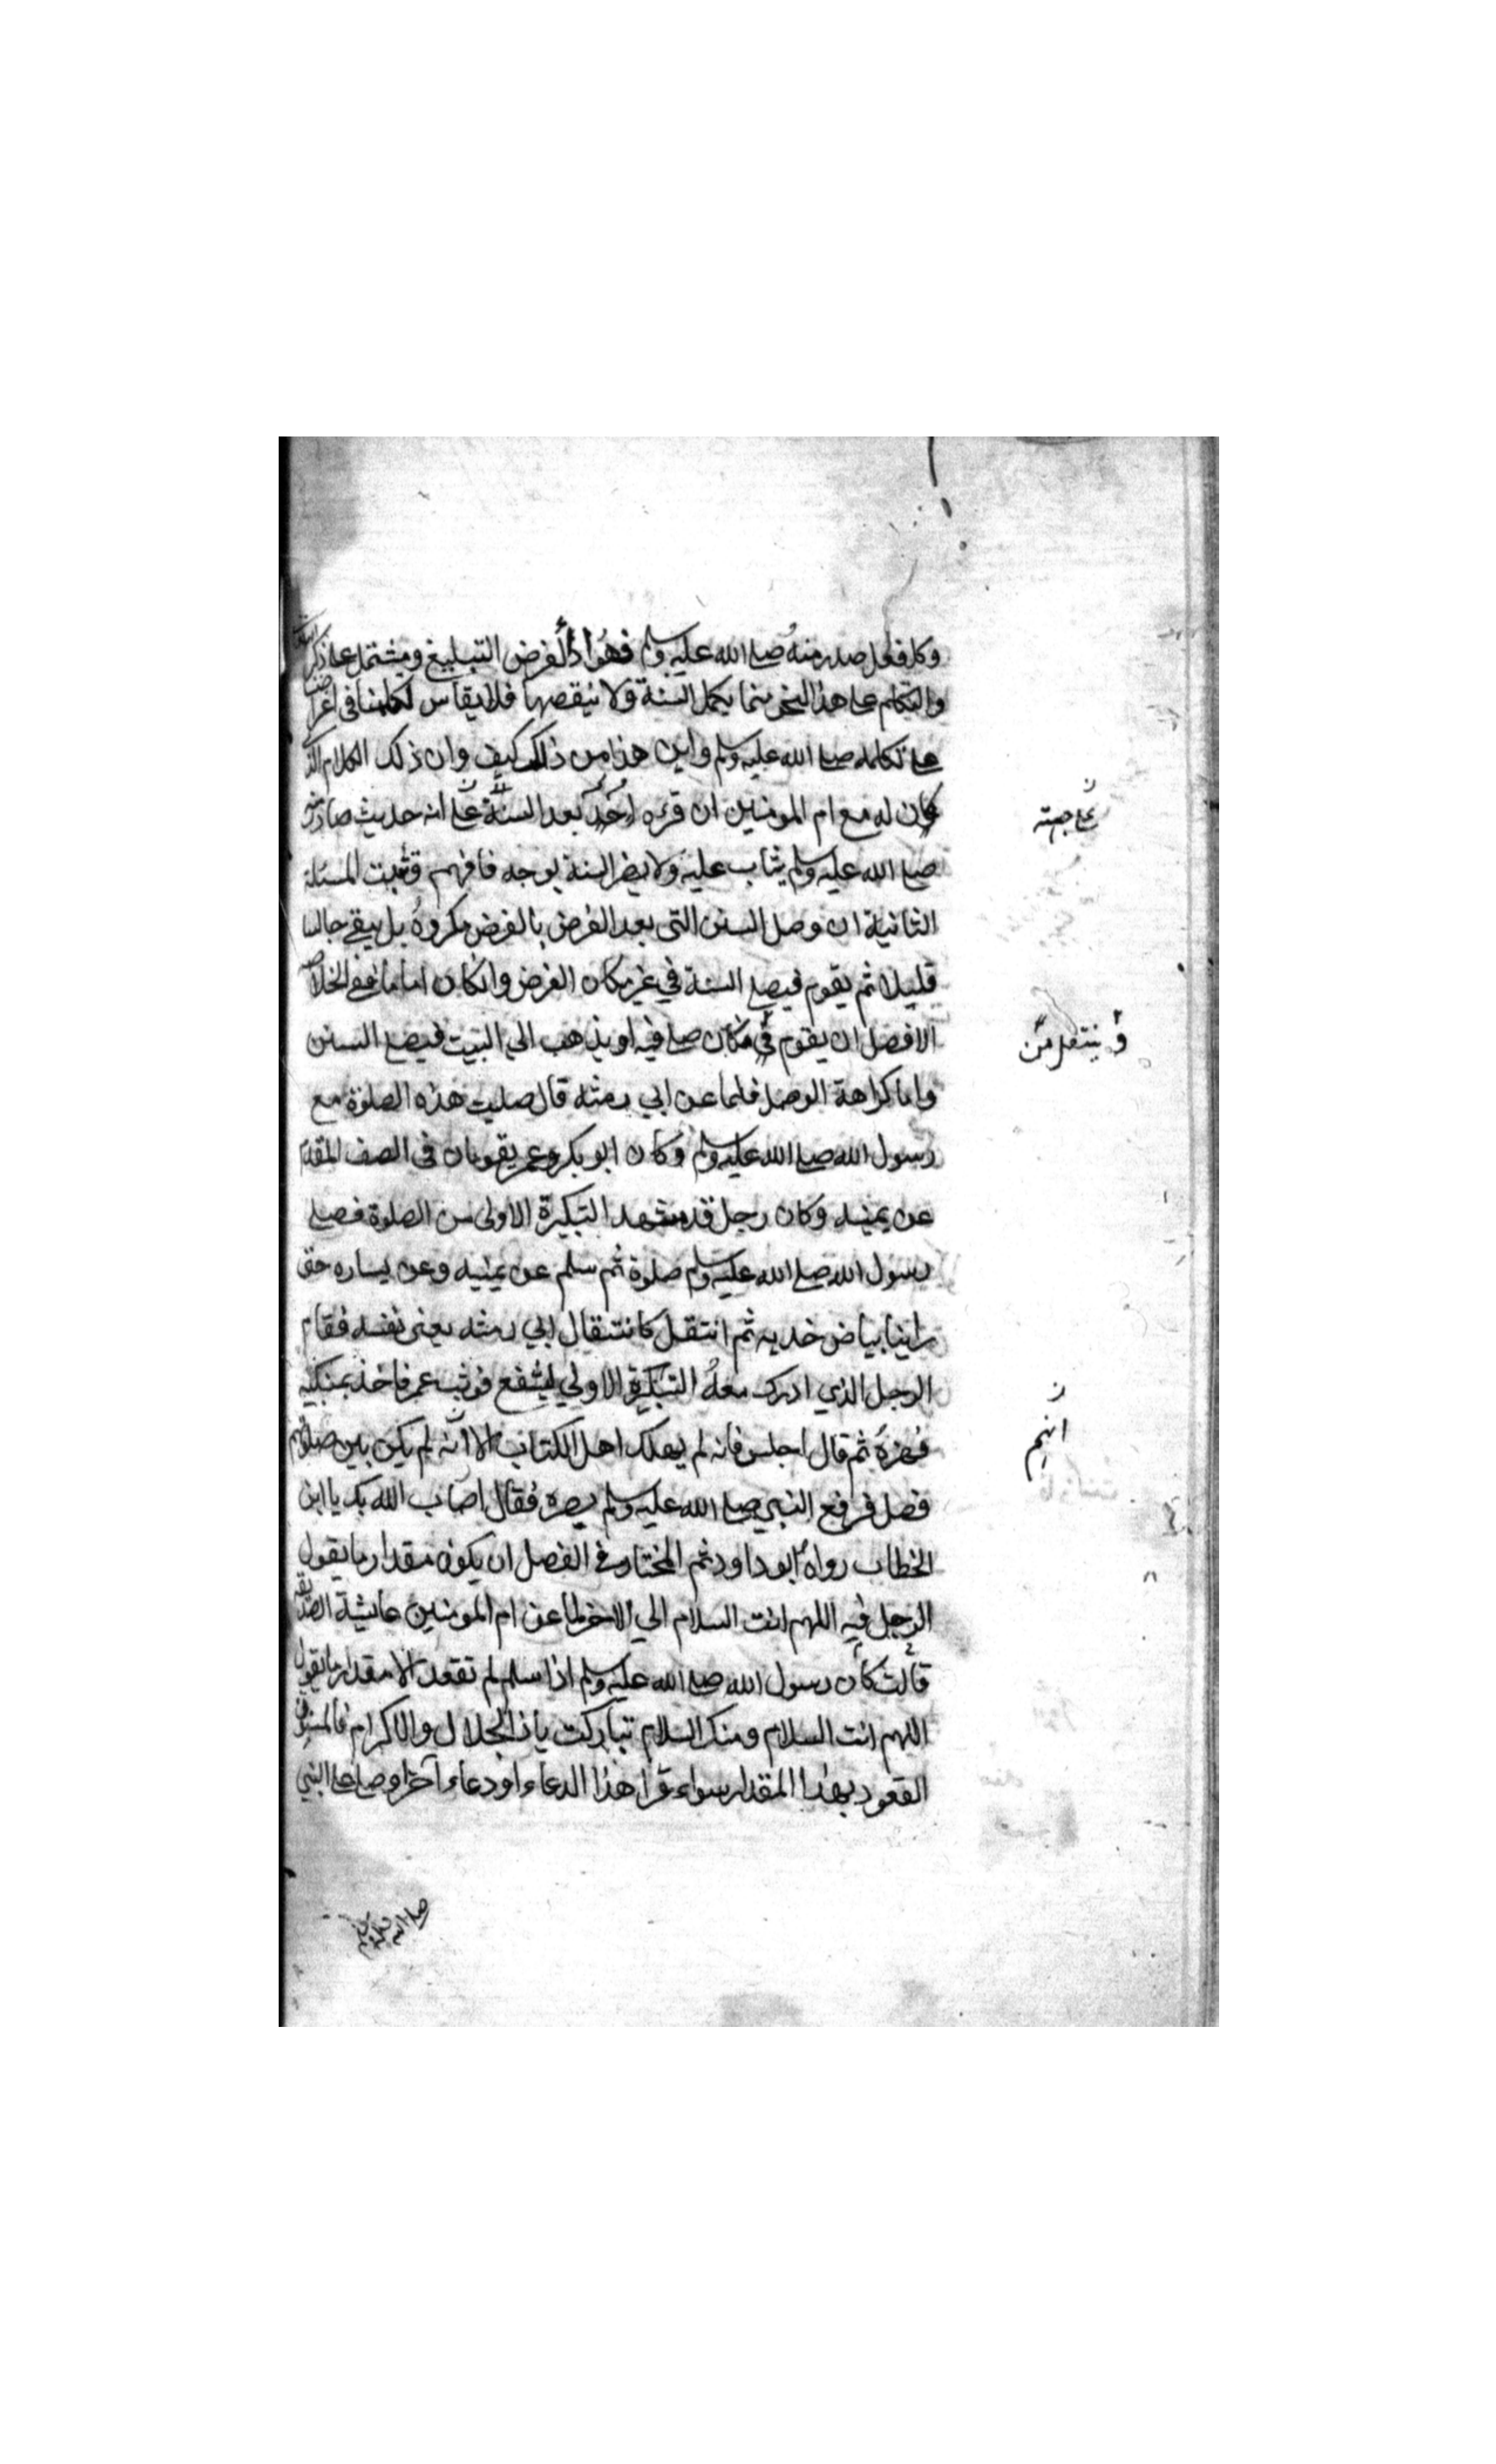 وكل فعل صدر منه صلى الله عليه وسلم فهو اداء لفرض التبليغ ومشتمل على ذكر
والتكلم على هذا النحو مما يكمل السنة ولا ينقصها فلا يقاس تكلمنا فى اغراضنا
على تكلمه صلى الله عليه وسلم واين هذا من ذلك كيف وان ذلك الكلام الذى
كان له مع ام المومنين ان قرءه احد بعد السنة على انه حديث صادر منه
صلى الله عليه وسلم يثاب عليه ولا يضر السنة بوجه فافهم وتثبت المسئلة
الثانية ان وصل السنن التى بعد الفرض بالفرض مكروه بل يبقى جالسا
قليلا ثم يقوم فيصلى السنة في غير مكان الفرض وان كان اماما ففى الخلاصة
الافضل ان يقوم فى مكان صلى فيه او يذهب الي البيت فيصلى السنن
واما كراهة الوصل فلما عن ابي رمثه قال صليت هذه الصلوة مع
رسول الله صلى الله عليه وسلم وكان ابو بكر وعمر يقومان فى الصف المقدم
عن يمينه وكان رجل قد شهد التبكيرة الاولى من الصلوة فصلى
رسول الله صلى الله عليه وسلم صلوة ثم سلم عن يمينه وعن يساره حتى
راينا بياض خديه ثم انتقل كانتقال ابي رمثه يعنى نفسه فقام
الرجل الذي ادرك معه التبكيرة الاولي ليشفع فوثب عمر فاخذ بمنكبيه
فهزه ثم قال اجلس فانه لم يهلك اهل الكتاب الا انه لم يكن بين صلوتهم
فصل فرفع النبي صلى الله عليه وسلم بصره فقال اصاب الله بك يا ابن
الخطاب رواه ابو داود ثم المختار فى الفصل ان يكون مقدار ما يقول
الرجل فيه اللهم انت السلام الي الاخر لما عن ام المومنين عايشة الصديقه
قالت كان رسول الله صلى الله عليه وسلم اذا سلم لم تقعد الا مقدار ما يقول
اللهم انت السلام ومنك السلام تباركت يا ذا الجلال والاكرام فالمسنون
القعود بهذا المقدار سواء قرا هذا الدعاء او دعاء آخر او صلى على النبي
صلى الله عليه وسلم
على جهته
و ينتقل من
انهم